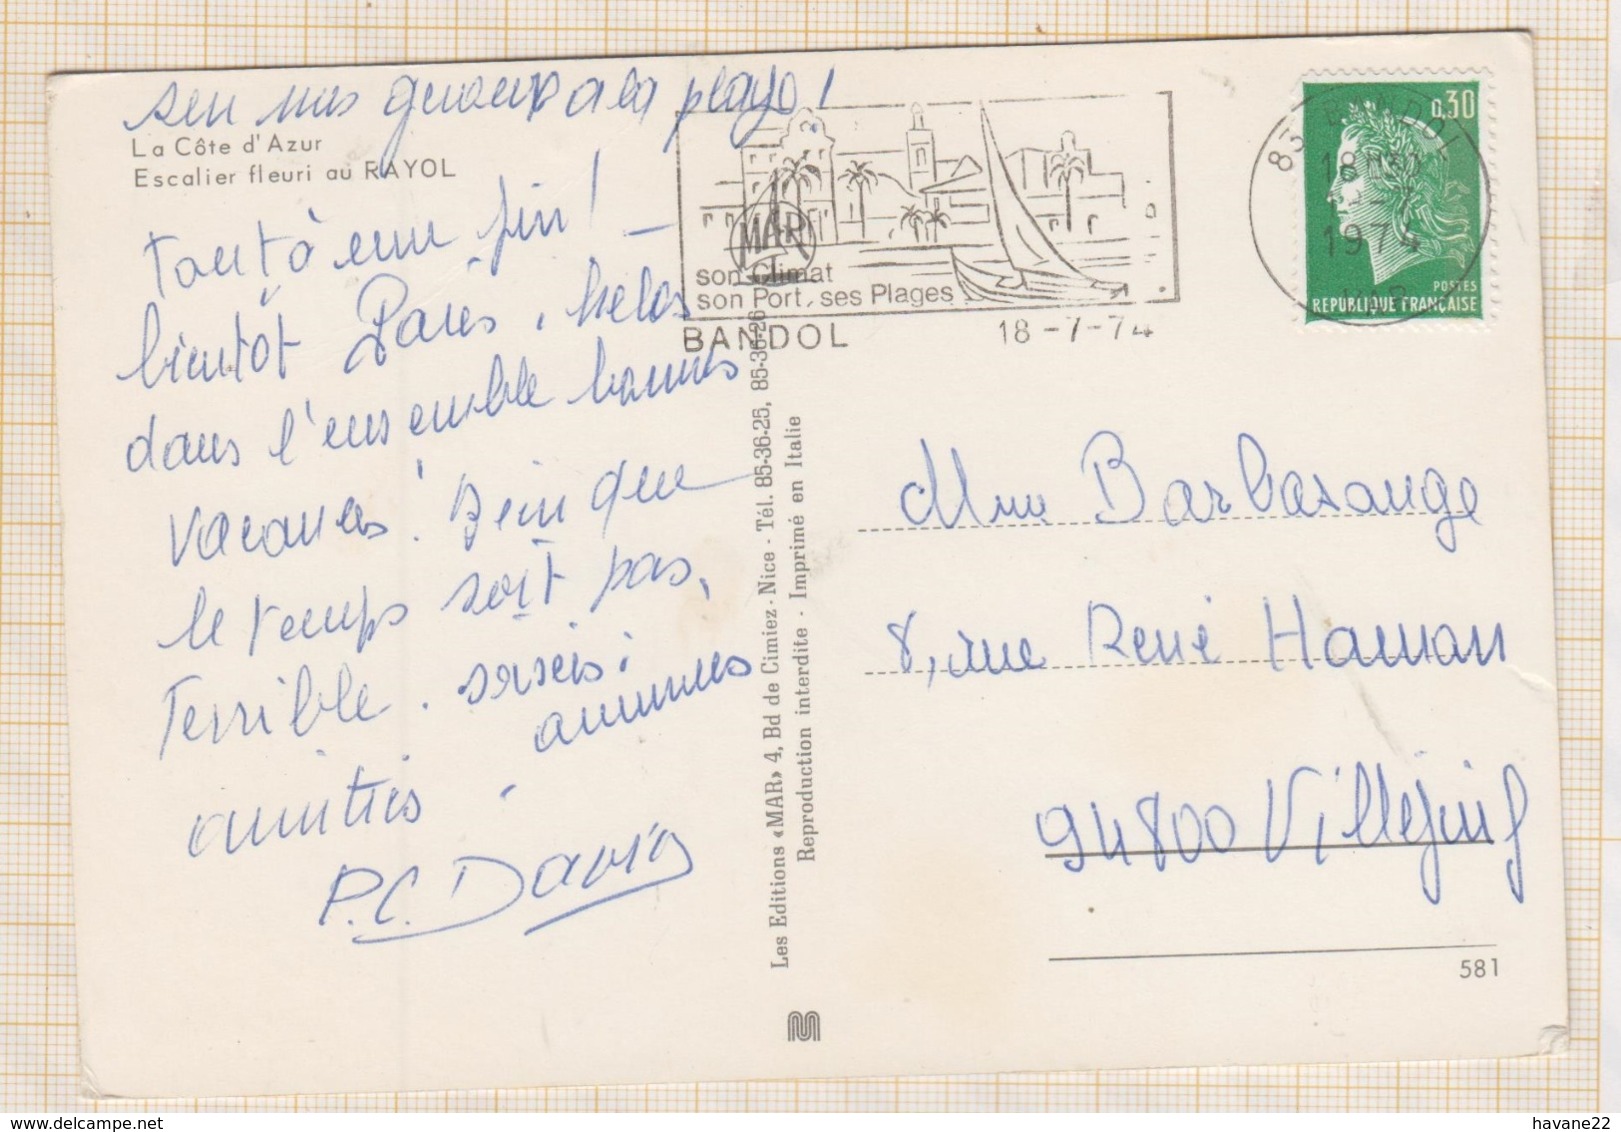 sur nos genoux a la plage !
La Côte d'Azur
Escalier fleuri au RAYOL
Tout à une fin ! —
bientôt Paris, hélas
dans l'ensemble bonnes
vacances ! Bien que
le temps soit pas
Terrible.
amitiés
P.C. David
MAR
son Climat
son Port, ses Plages
BANDOL
18-7-74
83 BANDOL
18H30
1974
VAR
0,30
POSTES
REPUBLIQUE FRANÇAISE
Les Editions «MAR» 4, Bd de Cimiez - Nice - Tél. 85-36-25, 85-36-26
Reproduction interdite - Imprimé en Italie
Mme Barbasange
8, rue René Hamon
94800 Villejuif
581
havane22